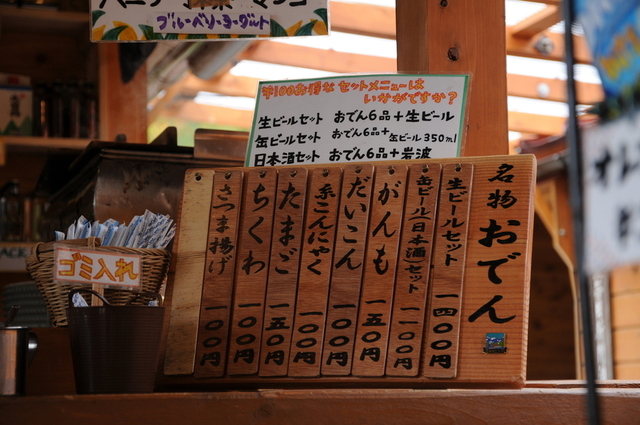 ブルーベリーヨーグルト
¥100お得な セットメニューは
いかがですか?
生ビールセット おでん6品+生ビール
缶ビールセット おでん6品+缶ビール350ml
日本酒セット おでん6品+岩波
名物 おでん
生ビールセット 一四〇〇円
缶ビール/日本酒セット 一一〇〇円
がんも 一五〇円
だいこん 一〇〇円
糸こんにゃく 一〇〇円
たまご 一五〇円
ちくわ 一〇〇円
さつま揚げ 一〇〇円
ゴミ入れ